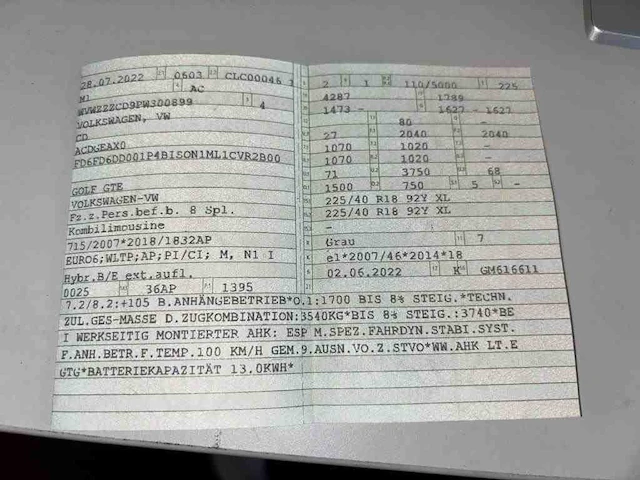 28.07.2022 0603 CLC00046 1
M1 AC
WVWZZZCD9PW300899 4
VOLKSWAGEN, VW
CD
ACDGEAX0
FD6FD6DD001P4BISON1ML1CVR2B00
GOLF GTE
VOLKSWAGEN-VW
Fz.z.Pers.bef.b. 8 Spl.
Kombilimousine
715/2007*2018/1832AP
EURO6;WLTP;AP;PI/CI; M, N1 I
Hybr.B/E ext.aufl.
0025 36AP 1395
2 1 110/5000 225
4287 1789
1473 - 1627 - 1627
80 -
27 2040 2040
1070 1020 -
1070 1020 -
71 3750 68
1500 750 5 -
225/40 R18 92Y XL
225/40 R18 92Y XL
-
Grau 7
e1*2007/46*2014*18
02.06.2022 K GM616611
7.2/8.2:+105 B.ANHÄNGEBETRIEB*O.1:1700 BIS 8% STEIG.*TECHN.
ZUL.GES-MASSE D.ZUGKOMBINATION:3540KG*BIS 8% STEIG.:3740*BE
I WERKSEITIG MONTIERTER AHK: ESP M.SPEZ.FAHRDYN.STABI.SYST.
F.ANH.BETR.F.TEMP.100 KM/H GEM.9.AUSN.VO.Z.STVO*WW.AHK LT.E
GTG*BATTERIEKAPAZITÄT 13.0KWH*